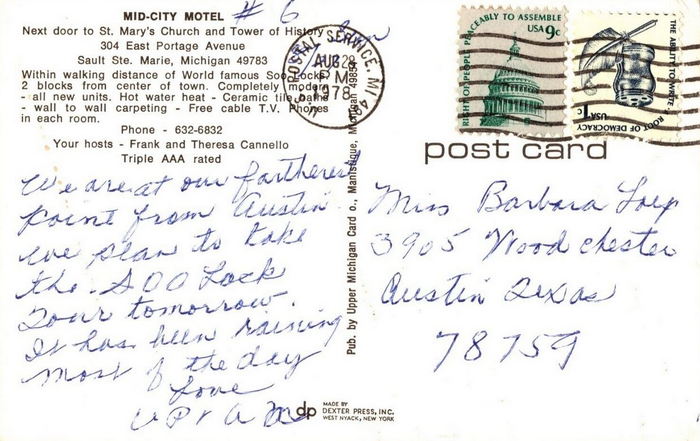 MID-CITY MOTEL # 6
Next door to St. Mary's Church and Tower of History
304 East Portage Avenue
Sault Ste. Marie, Michigan 49783
Within walking distance of World famous Soo Locks
2 blocks from center of town. Completely modern
- all new units. Hot water heat - Ceramic tile baths
- wall to wall carpeting - Free cable T.V. Phones
in each room.
Phone - 632-6832
Your hosts - Frank and Theresa Cannello
Triple AAA rated
We are at our fartherest
point from Austin.
We plan to take
the SOO Lock
Tour tomorrow.
It has been raining
most of the day
Love
Pub. by Upper Michigan Card o., Manistique, Michigan 49854
MADE BY
DEXTER PRESS, INC.
WEST NYACK, NEW YORK
dp
U.S. POSTAL SERVICE, MI
AUG 29
PM
1978
RIGHT OF PEOPLE PEACEABLY TO ASSEMBLE
USA 9c
THE ABILITY TO WRITE
ROOT OF DEMOCRACY
USA 1c
post card
Miss Barbara
3905 Woodchester
Austin Texas
78759